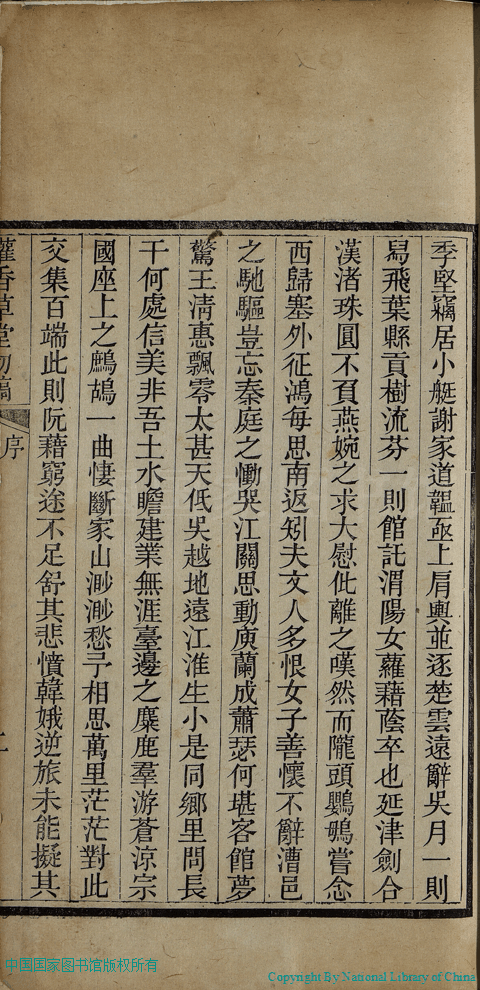 季堅竊居小艇謝家道韞亟上肩輿並逐楚雲遠辭吳月一則
舄飛葉縣貢樹流芬一則館託渭陽女蘿藉蔭卒也延津劍合
漢渚珠圓不負燕婉之求大慰仳離之嘆然而隴頭鸚鵡嘗念
西歸塞外征鴻每思南返矧夫文人多恨女子善懷不辭漕邑
之馳驅豈忘秦庭之慟哭江關思動庾蘭成蕭瑟何堪客館夢
驚王清惠飄零太甚天低吳越地遠江淮生小是同鄉里問長
干何處信美非吾土水瞻建業無涯臺邊之麋鹿羣游蒼涼宗
國座上之鷓鴣一曲悽斷家山渺渺愁予相思萬里茫茫對此
交集百端此則阮藉窮途不足舒其悲憤韓娥逆旅未能擬其
香草堂初稿 序 二
中国国家图书馆版权所有
Copyright By National Library of China